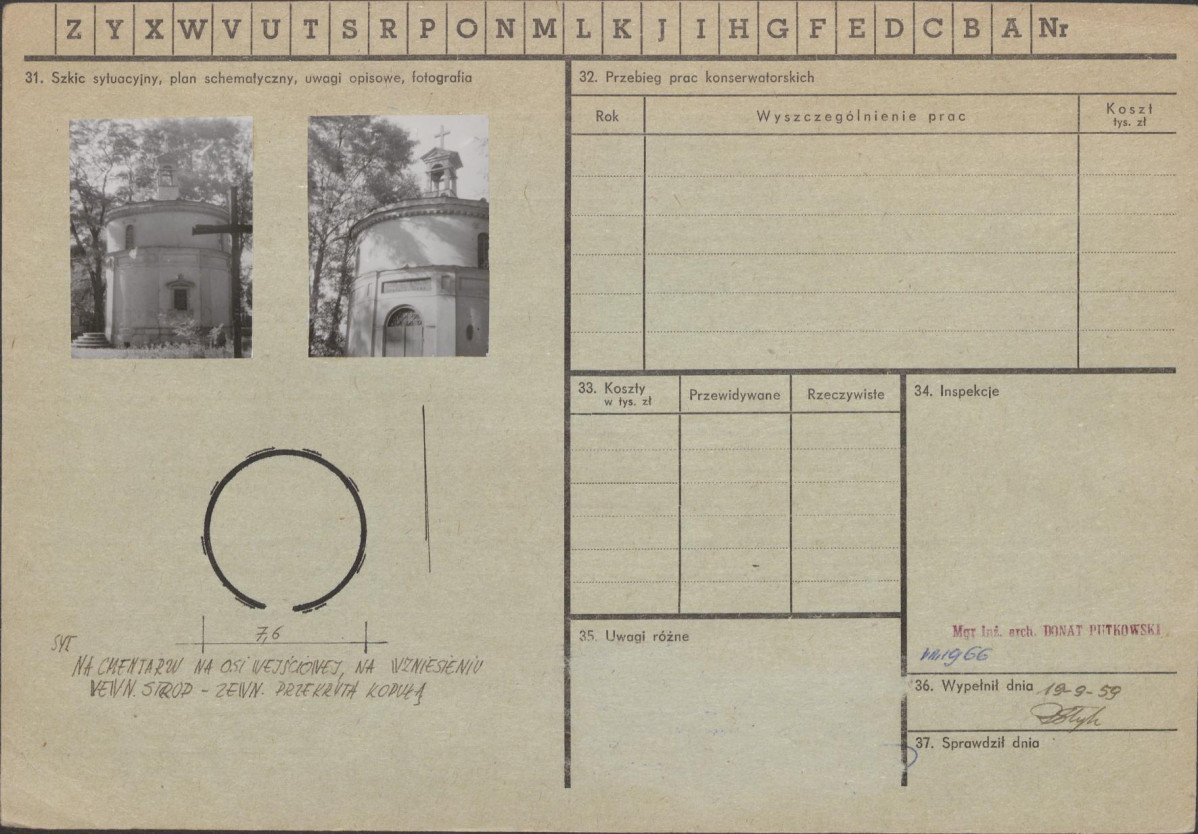 Z Y X W V U T S R P O N M L K J I H G F E D C B A Nr
31. Szkic sytuacyjny, plan schematyczny, uwagi opisowe, fotografia
7,6
SYT
NA CMENTARZU NA OSI WEJŚCIOWEJ, NA WZNIESIENIU
WEWN. STROP - ZEWN. PRZEKRYTA KOPUŁĄ
32. Przebieg prac konserwatorskich
Rok
Wyszczególnienie prac
Koszt
tys. zł
33. Koszty
w tys. zł
Przewidywane
Rzeczywiste
34. Inspekcje
Mgr inż. arch. DONAT PUTKOWSKI
1966
35. Uwagi różne
36. Wypełnił dnia 19-9-59
37. Sprawdził dnia